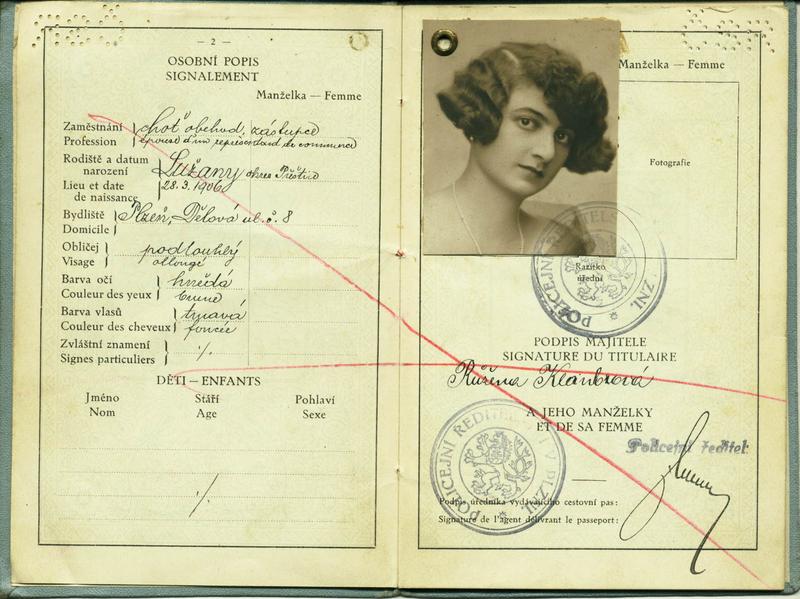 — 2 —
OSOBNÍ POPIS
SIGNALEMENT
Manželka — Femme
Zaměstnání
Profession
choť obchod. zástupce
épouse d'un représentant de commerce
Rodiště a datum
narození
Lieu et date
de naissance
Lužany okres Přeštice
28.3.1906
Bydliště
Domicile
Plzeň, Dělová ul. č. 8
Obličej
Visage
podlouhlý
oblongé
Barva očí
Couleur des yeux
hnědá
brune
Barva vlasů
Couleur des cheveux
tmavá
foncée
Zvláštní znamení
Signes particuliers
·/.
DĚTI — ENFANTS
Jméno Stáří Pohlaví
Nom Age Sexe
·/.
Manželka — Femme
Fotografie
Razítko
úřední
POLICEJNÍ ŘEDITELSTVÍ V PLZNI
PODPIS MAJITELE
SIGNATURE DU TITULAIRE
Růžena
A JEHO MANŽELKY
ET DE SA FEMME
Policejní ředitel:
POLICEJNÍ ŘEDITELSTVÍ V PLZNI
Podpis úředníka vydávajícího cestovní pas:
Signature de l'agent délivrant le passeport: